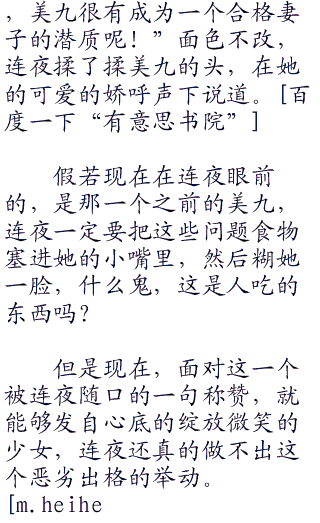 ，美九很有成为一个合格妻
子的潜质呢！”面色不改，
连夜揉了揉美九的头，在她
的可爱的娇呼声下说道。[百
度一下“有意思书院”]
假若现在在连夜眼前
的，是那一个之前的美九，
连夜一定要把这些问题食物
塞进她的小嘴里，然后糊她
一脸，什么鬼，这是人吃的
东西吗？
但是现在，面对这一个
被连夜随口的一句称赞，就
能够发自心底的绽放微笑的
少女，连夜还真的做不出这
个恶劣出格的举动。
[m.heihe